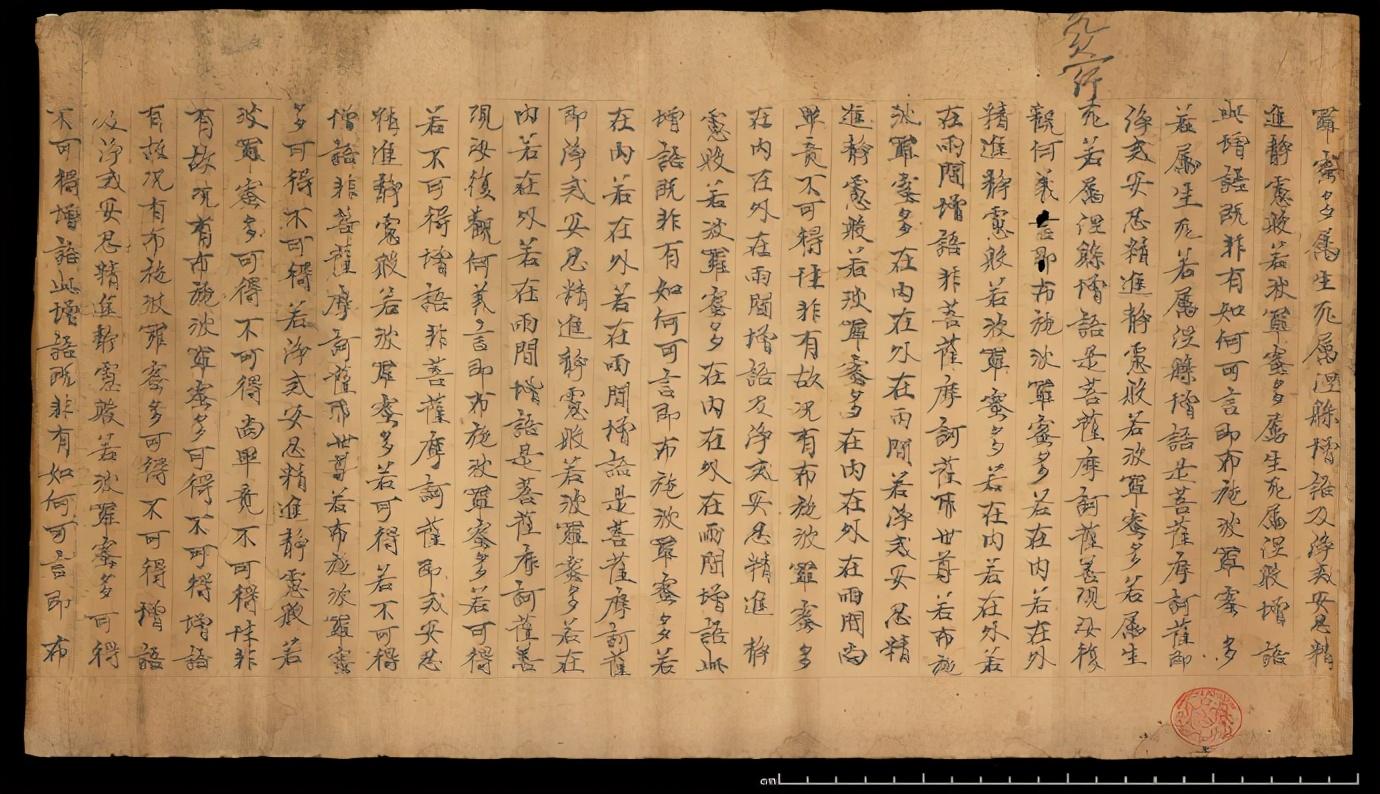 羅蜜多属生死属涅槃增語及淨戒安忍精
進静慮般若波羅蜜多属生死属涅般增語
此增語既非有如何可言即布施波羅蜜多
若属生死若属涅槃增語是菩薩摩訶薩即
淨戒安忍精進静慮般若波羅蜜多若属生
死若属涅槃增語是菩薩摩訶薩善現汝復
觀何義言即布施波羅蜜多若在内若在外
精進静慮般若波羅蜜多若在内若在外若
在兩間增語非菩薩摩訶薩耶世尊若布施
波羅蜜多在内在外在兩間若淨戒安忍精
進静慮般若波羅蜜多在内在外在兩間尚
畢竟不可得性非有故况有布施波羅蜜多
在内在外在兩間增語及淨戒安忍精進静
慮般若波羅蜜多在内在外在兩間增語此
增語既非有如何可言即布施波羅蜜多若
在内若在外若在兩間增語是菩薩摩訶薩
即淨戒安忍精進静慮般若波羅蜜多若在
内若在外若在兩間增語是菩薩摩訶薩善
現汝復觀何義言即布施波羅蜜多若可得
若不可得增語非菩薩摩訶薩即戒安忍
精進静慮般若波羅蜜多若可得若不可得
增語非菩薩摩訶薩耶世尊若布施波羅蜜
多可得不可得若淨戒安忍精進静慮般若
波羅蜜多可得不可得尚畢竟不可得性非
有故况有布施波羅蜜多可得不可得增語
有故况有布施波羅蜜多可得不可得增語
及淨戒安忍精進静慮般若波羅蜜多可得
不可得增語此增語既非有如何可言即布
cm